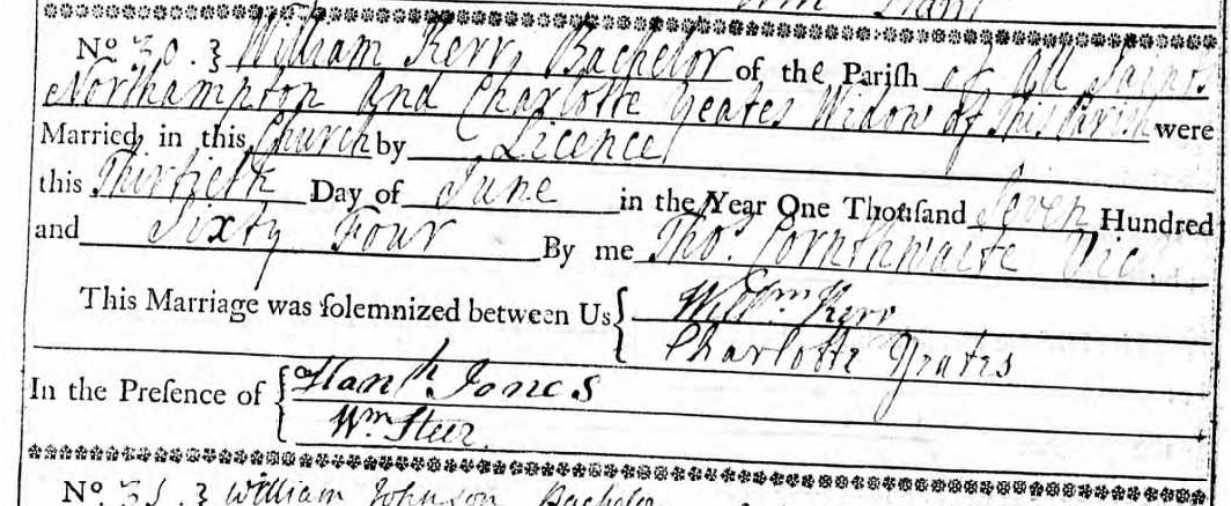 Nº 30. } William Kerr, Bachelor of the Pariſh of All Saints
Northampton and Charlotte Yeates Widow of this Parish were
Married in this Church by Licence
this Thirtieth Day of June in the Year One Thouſand Seven Hundred
and Sixty Four By me Thoˢ. Cornthwaite Vic.
This Marriage was ſolemnized between Us { Willᵐ Kerr
Charlotte Yeates
In the Preſence of { Hanʰ Jones
Wᵐ Steer.
Nº } William Johnson Bachelor